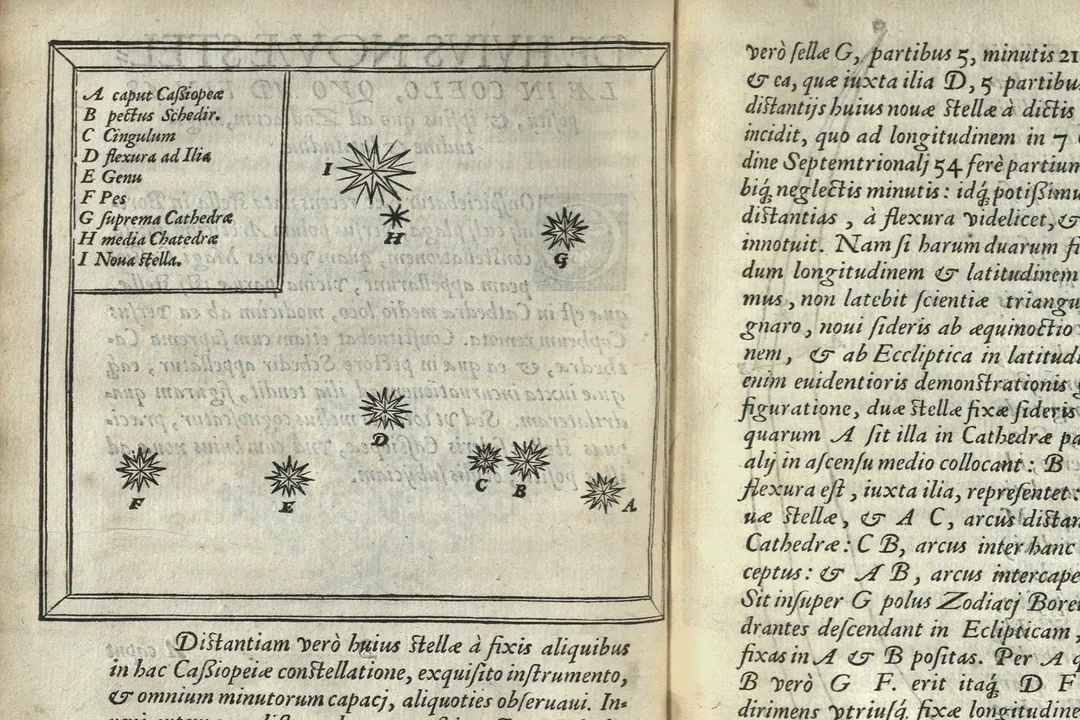 A caput Caßiopeæ
B pectus Schedir.
C Cingulum
D flexura ad Ilia
E Genu
F Pes
G suprema Cathedræ
H media Chatedræ
I Noua stella.
I
H
G
D
F
E
C
B
A
Distantiam verò huius stellæ à fixis aliquibus
in hac Caßiopeiæ constellatione, exquisito instrumento,
& omnium minutorum capacj, aliquoties obseruaui. In-
verò sellæ G, partibus 5, minutis 21
& ea, quæ iuxta ilia D, 5 partibu
distantijs huius nouæ stellæ à dictis
incidit, quo ad longitudinem in 7
dine Septemtrionalj 54 ferè partium
biq́; neglectis minutis: idq́; potißimu
distantias, à flexura videlicet, &
innotuit. Nam si harum duarum fi
dum longitudinem & latitudinem
mus, non latebit scientiæ triangu
gnaro, noui sideris ab æquinoctio
nem, & ab Eccliptica in latitudi
enim euidentioris demonstrationis
figuratione, duæ stellæ fixæ sideris
quarum A sit illa in Cathedræ pa
alij in ascensu medio collocant: B
flexura est, iuxta ilia, repræsentet:
uæ stellæ, & A C, arcus distan
Cathedræ: C B, arcus inter hanc
ceptus: & A B, arcus intercape
Sit insuper G polus Zodiacj Borer
drantes descendant in Eclipticam,
fixas in A & B positas. Per A q
B verò G F. erit itaq́; D F
dirimens vtriusq́; fixæ longitudine